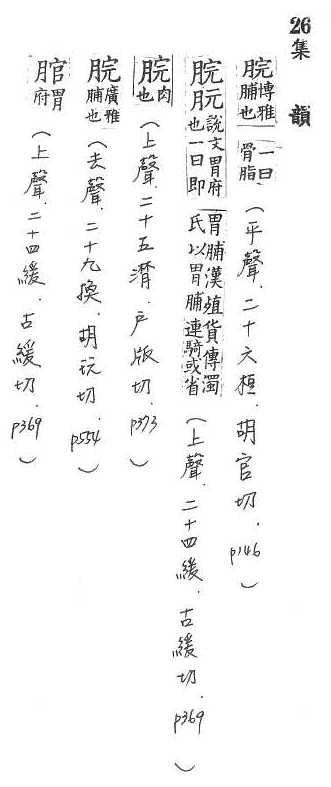 26集 韻
脘博雅脯也一曰骨脂（平聲．二十六桓．胡官切．p146）
脘朊說文胃府也一曰胃脯漢殖貨傳濁氏以胃脯連騎或省（上聲．二十四緩．古緩切．p369）
脘肉也（上聲．二十五潸．戶版切．p373）
脘廣雅脯也（去聲．二十九換．胡玩切．p554）
䐠胃府（上聲．二十四緩．古緩切．p369）